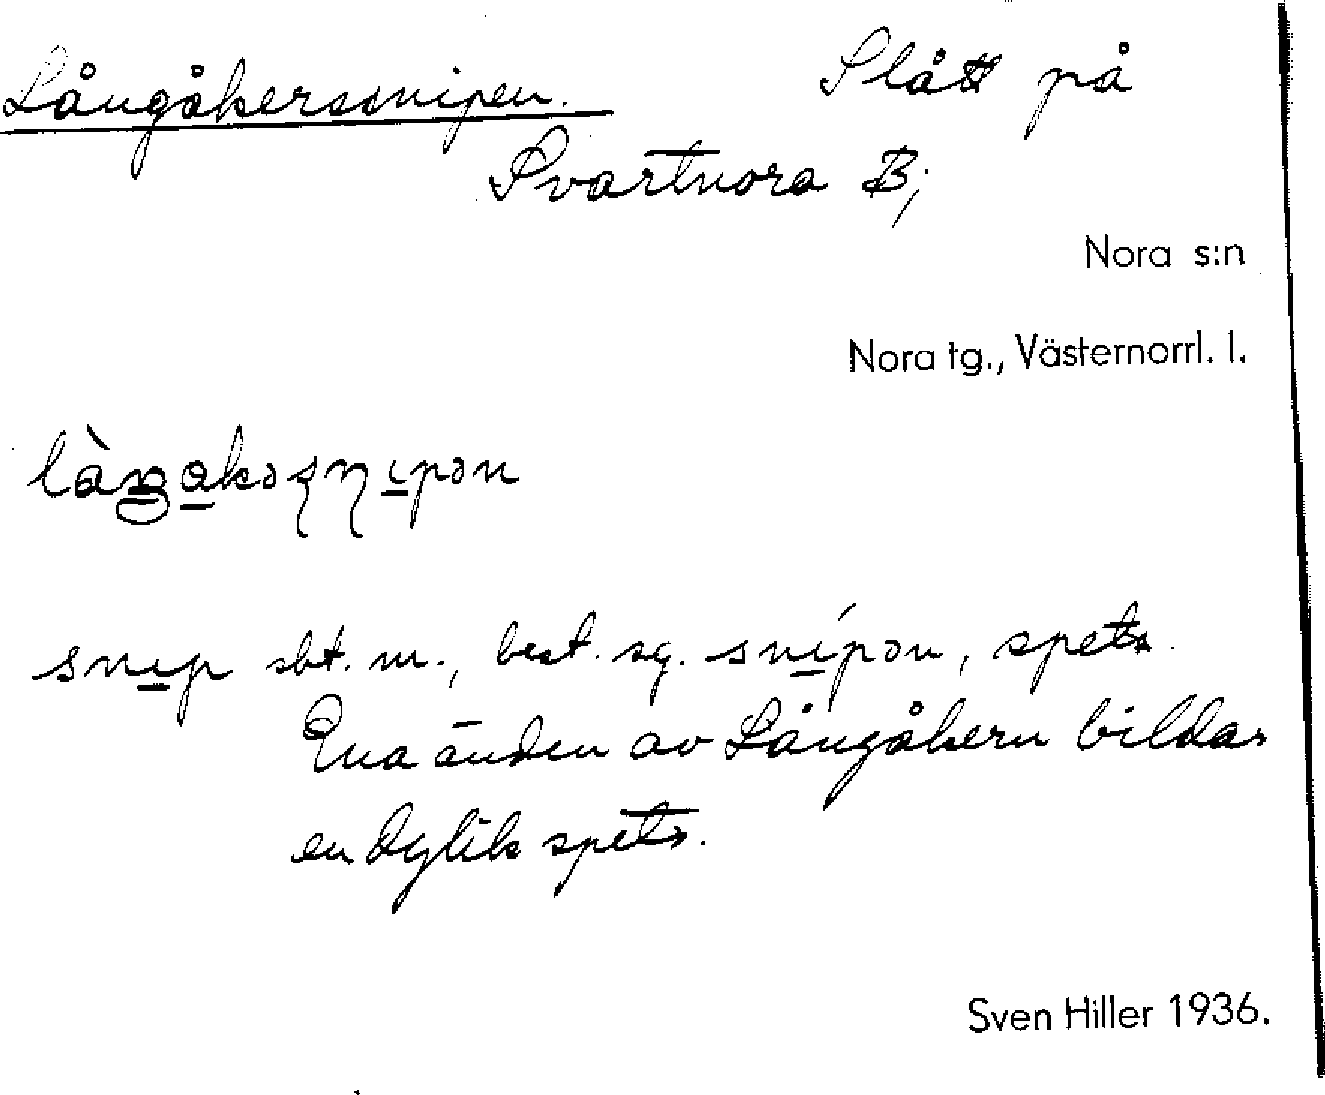 Långåkerssnipen. Slått på
Svartnora B;
Nora s:n
Nora tg., Västernorrl. l.
snip sbt. m., best. sg. snípən, spets.
Ena änden av Långåkern bildar
en dylik spets.
Sven Hiller 1936.